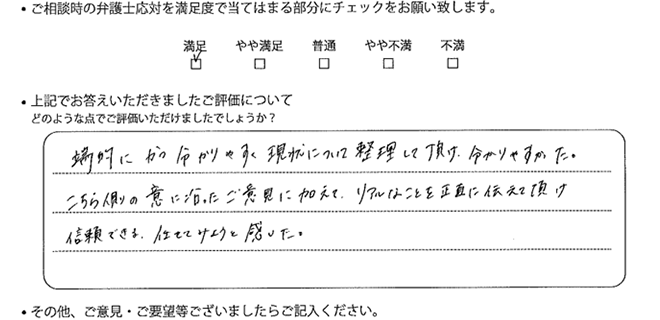 ・ご相談時の弁護士応対を満足度で当てはまる部分にチェックをお願い致します。
満足 やや満足 普通 やや不満 不満
・上記でお答えいただきましたご評価について
どのような点でご評価いただけましたでしょうか？
端的に かつ 分かりやすく 現状について 整理して頂け、分かりやすかった。
こちら側の 意に沿ったご意見に加えて、リアルなことを正直に伝えて頂け
信頼できる、任せてみようと 感じた。
・その他、ご意見・ご要望等ございましたらご記入ください。